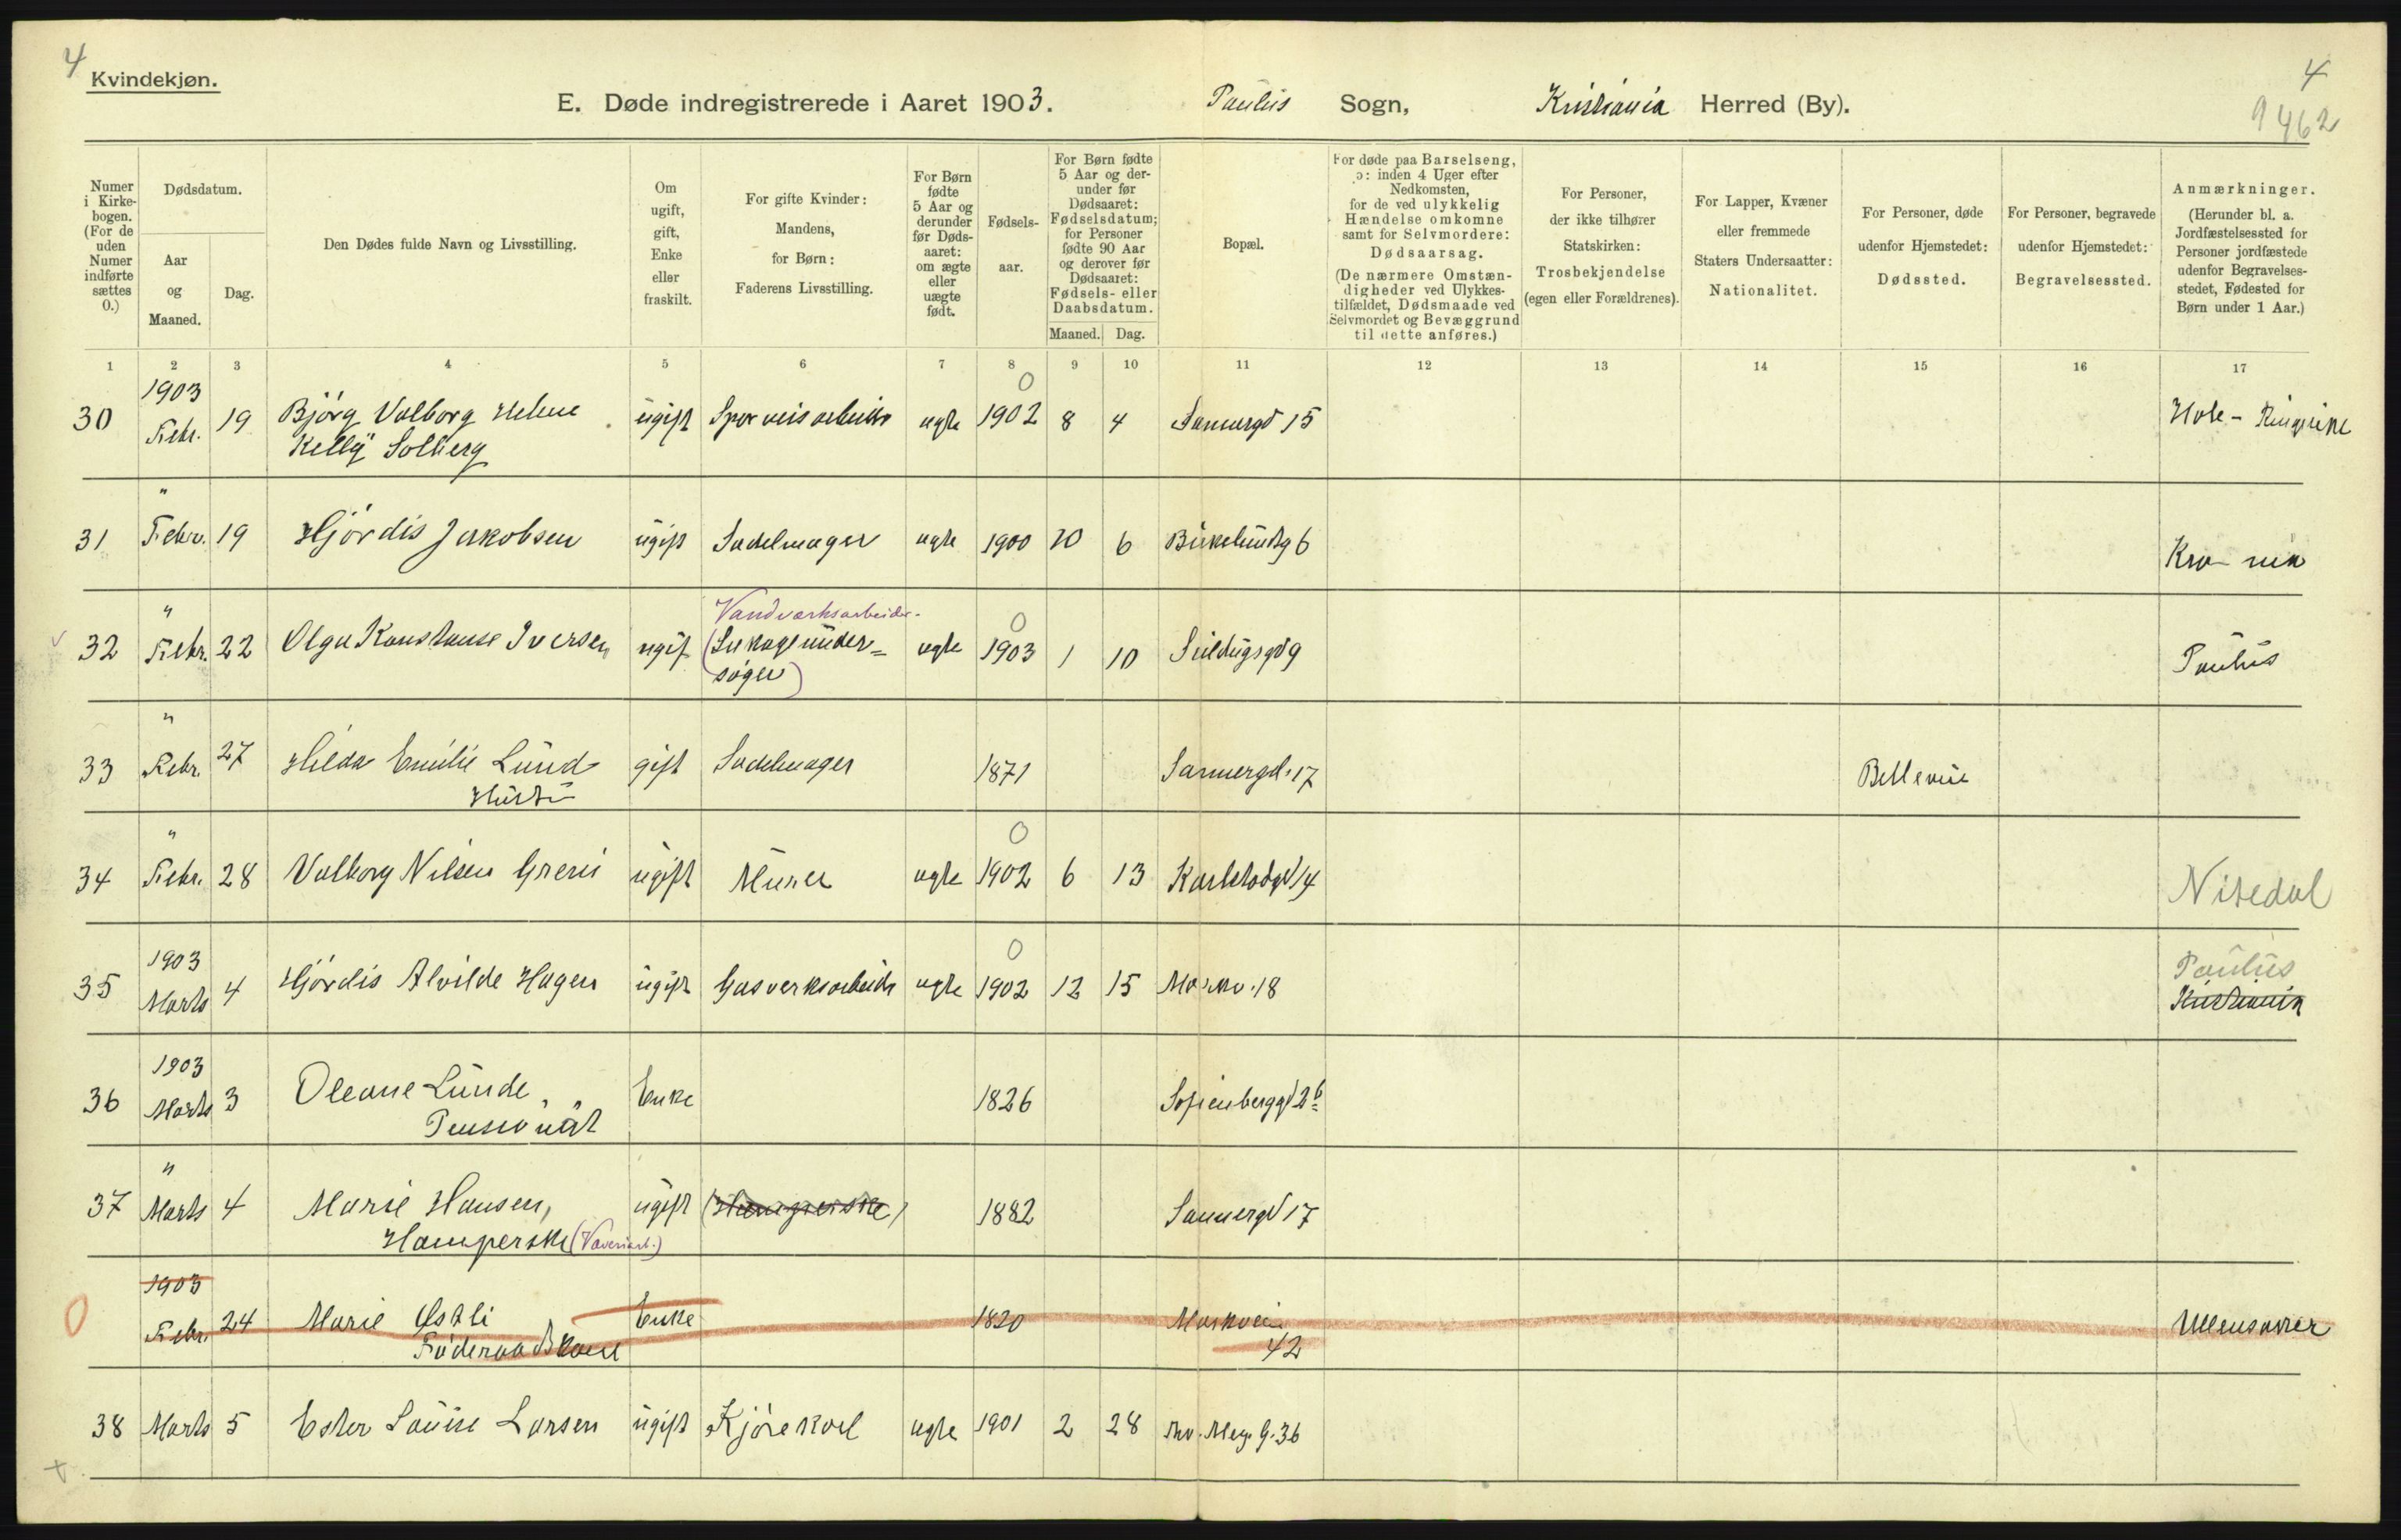 4
Kvindekjøn.
E. Døde indregistrerede i Aaret 1903. Paulus Sogn, Kristiania Herred (By).
4
9462
Numer i Kirkebogen. (For de uden Numer indførte sættes 0.)
Dødsdatum.
Aar og Maaned.
Dag.
Den Dødes fulde Navn og Livsstilling.
Om ugift, gift, Enke eller fraskilt.
For gifte Kvinder: Mandens, for Børn: Faderens Livsstilling.
For Børn fødte 5 Aar og derunder før Dødsaaret: om ægte eller uægte født.
Fødselsaar.
For Børn fødte 5 Aar og derunder før Dødsaaret: Fødselsdatum; for Personer fødte 90 Aar og derover før Dødsaaret: Fødsels- eller Daabsdatum.
Maaned. Dag.
Bopæl.
For døde paa Barselseng, ɔ: inden 4 Uger efter Nedkomsten, for de ved ulykkelig Hændelse omkomne samt for Selvmordere: Dødsaarsag. (De nærmere Omstændigheder ved Ulykkestilfældet, Dødsmaade ved Selvmordet og Bevæggrund til dette anføres.)
For Personer, der ikke tilhører Statskirken: Trosbekjendelse (egen eller Forældrenes).
For Lapper, Kvæner eller fremmede Staters Undersaatter: Nationalitet.
For Personer, døde udenfor Hjemstedet: Dødssted.
For Personer, begravede udenfor Hjemstedet: Begravelsessted.
Anmærkninger. (Herunder bl. a. Jordfæstelsessted for Personer jordfæstede udenfor Begravelsesstedet, Fødested for Børn under 1 Aar.)
1 2 3 4 5 6 7 8 9 10 11 12 13 14 15 16 17
1903 0
30 Febr. 19 Bjørg Valborg Helene ugift Sporveisarbeider ægte 1902 8 4 Sannergd 15 Hole - Ringerike
Kelly Solberg
"
31 Febr. 19 Hjørdis Jakobsen ugift Sadelmager ægte 1900 10 6 Birkelundsg 6 Kra- nia
" Vandværksarbeider- 0
32 Febr. 22 Olga Konstanse Iversen ugift ægte 1903 1 10 9 Paulus
søger)
"
33 Febr. 27 Hilda Emilie Lund gift Sadelmager 1871 Sannergd. 17 Bellevue
Hustru
" 0
34 Febr. 28 Valborg Nilsen Greni ugift Murer ægte 1902 6 13 Karlstadgd 14 Nitedal
1903 0 Paulus
35 Marts 4 Hjørdis Alvilde Hagen ugift Gasverksarbeider ægte 1902 12 15 Markv. 18 Kristiania
1903
36 Marts 3 Oleane Lunde, Enke 1826 Sofienberggd 2b
Pensionær
"
37 Marts 4 Marie Hansen, ugift (Hamperske) 1882 Sannergd 17
Hamperske (Væveriarb.)
1903
0 Febr. 24 Marie Østli Enke 1820 Markvein Ullensaker
Føderaadskone 42
38 Marts 5 Ester Louise Larsen ugift Kjørekarl ægte 1901 2 28 Thv. Mey. G. 36
+